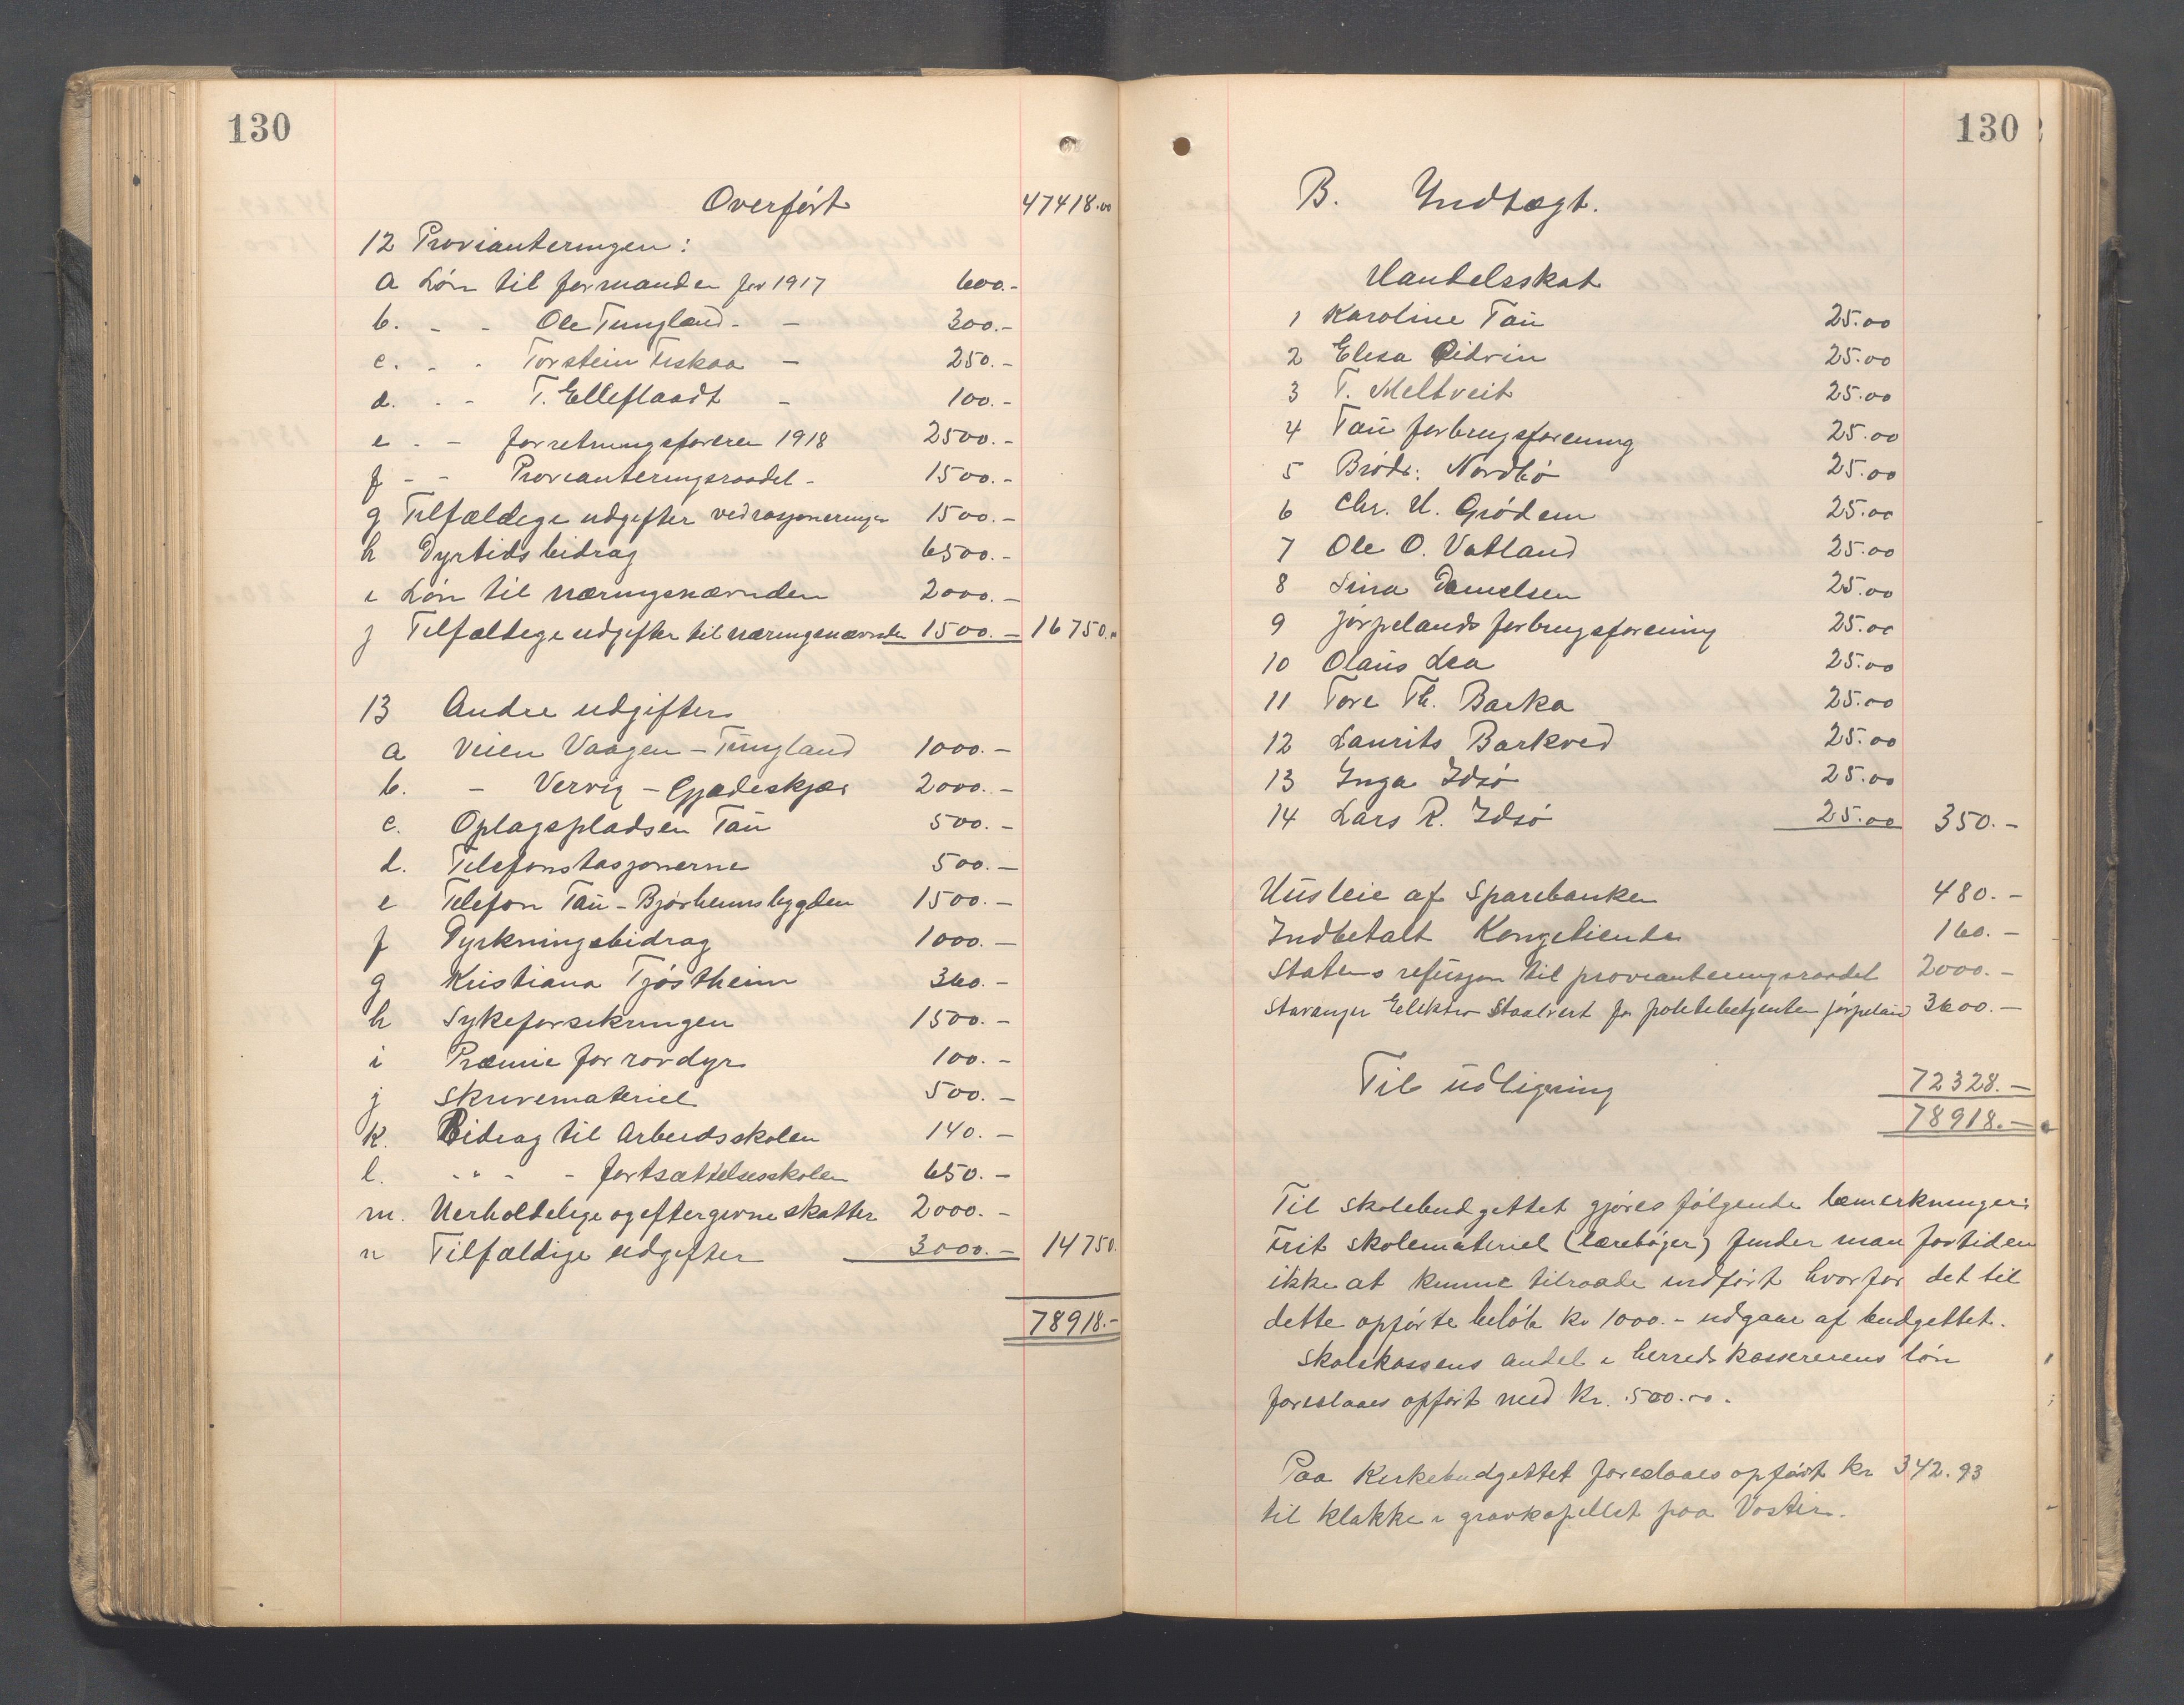 130
Overført 47418.00
12 Provianteringen:
a Løn til formanden for 1917 600.-
b. - - Ole Tungland - - 300.-
c. - - Torstein Fiskaa - 250.-
d. - - T. Elleflaadt - 100.-
e - - forretningsføreren 1918 2500.-
f - - Provianteringsraadet - 1500.-
g Tilfældige udgifter ved rasjoneringen 1500.-
h Dyrtidsbidrag 6500.-
i Løn til næringsnævnden 2000.-
j Tilfældige udgifter til næringsnævnden 1500.- 16750.-
13 Andre udgifter
a Veien Vaagen - Tungland 1000.-
b. - Vervig - Gjadeskjær 2000.-
c. Oplagspladsen Tau 500.-
d. Telefonstasjonerne 500.-
e Telefon Tau - Bjørheimsbygden 1500.-
f Dyrkningsbidrag 1000.-
g Kristiana Tjøstheim 360.-
h Sykeforsikringen 1500.-
i Præmie for rovdyr 100.-
j Skrivemateriel 500.-
k. Bidrag til Arbeidsskolen 140.-
l. - " - - fortsættelsesskolen 650.-
m. Uerholdelige og eftergivne skatter 2000.-
n Tilfældige udgifter 3000.- 14750.
78918.-
130
B. Indtægt.
Handelsskat
1 Karoline Tau 25.00
2 Elisa Eidvin 25.00
3 T. Meltveit 25.00
4 Tau forbrugsforening 25.00
5 Brødr. Nordbø 25.00
6 Chr. H. Grødem 25.00
7 Ole O. Vatland 25.00
8 Sina Danielsen 25.00
9 Jørpelands forbrugsforening 25.00
10 Olaus Lea 25.00
11 Tore Th. Barka 25.00
12 Laurits Barkved 25.00
13 Inga Idsø 25.00
14 Lars R. Idsø 25.00 350.-
Husleie af Sparebanken 480.-
Indbetalt Kongetiende 160.-
Statens refusjon til provianteringsraadet 2000.-
Stavanger Elektro Staalverk for politibetjenten Jørpeland 3600.-
Til udligning 72328.-
78918.-
Til skolebudgettet gjøres følgende bemerkninger:
Frit skolemateriel (lærebøger) finder man for tiden
ikke at kunne tilraade indført hvorfor det til
dette opførte beløb kr 1000.- udgaar af budgettet.
Skolekassens andel i herredskassererens løn
foreslaaes opført med kr. 500.00.
Paa Kirkebudgettet foreslaaes opført kr 342.93
til klokke i gravkapellet paa Voster.